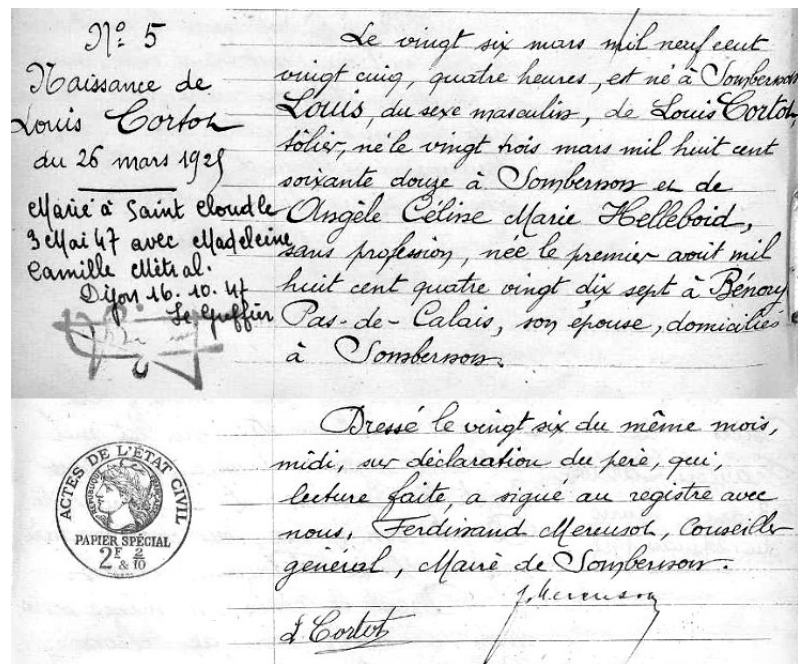 Nº 5
Naissance de
Louis Cortot
du 26 mars 1925
Marié à Saint Cloud le
3 Mai 47 avec Madeleine
Camille Mitral.
Dijon 16.10.47
Le Greffier
Le vingt six mars mil neuf cent
vingt cinq, quatre heures, est né à Sombernon
Louis, du sexe masculin, de Louis Cortot,
tôlier, né le vingt trois mars mil huit cent
soixante douze à Sombernon et de
Angèle Céline Marie Helleboid,
sans profession, née le premier août mil
huit cent quatre vingt dix sept à Bénory
Pas-de-Calais, son épouse, domiciliés
à Sombernon.
Dressé le vingt six du même mois,
midi, sur déclaration du père, qui,
lecture faite, a signé au registre avec
nous, Ferdinand Mereusot, Conseiller
général, Maire de Sombernon.
L Cortot
ACTES DE L'ÉTAT CIVIL
PAPIER SPÉCIAL
2F & 2/10